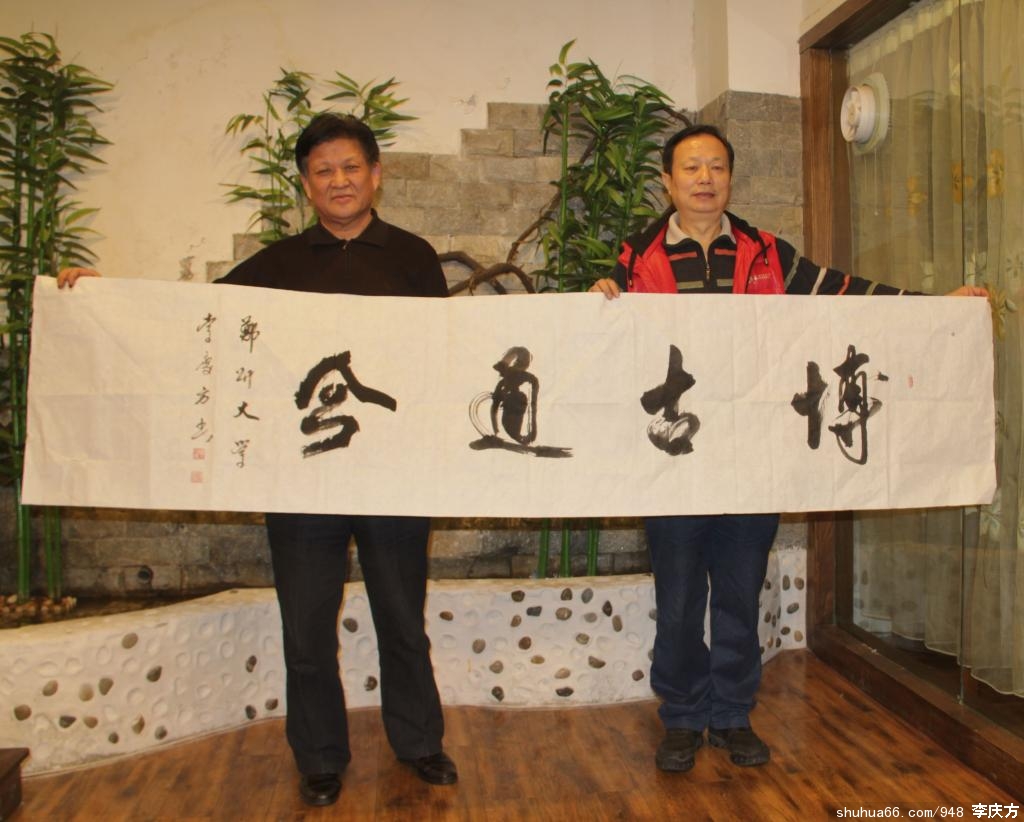 博古通今
鄭州大學
李慶方書
shuhua66.com/948 李庆方